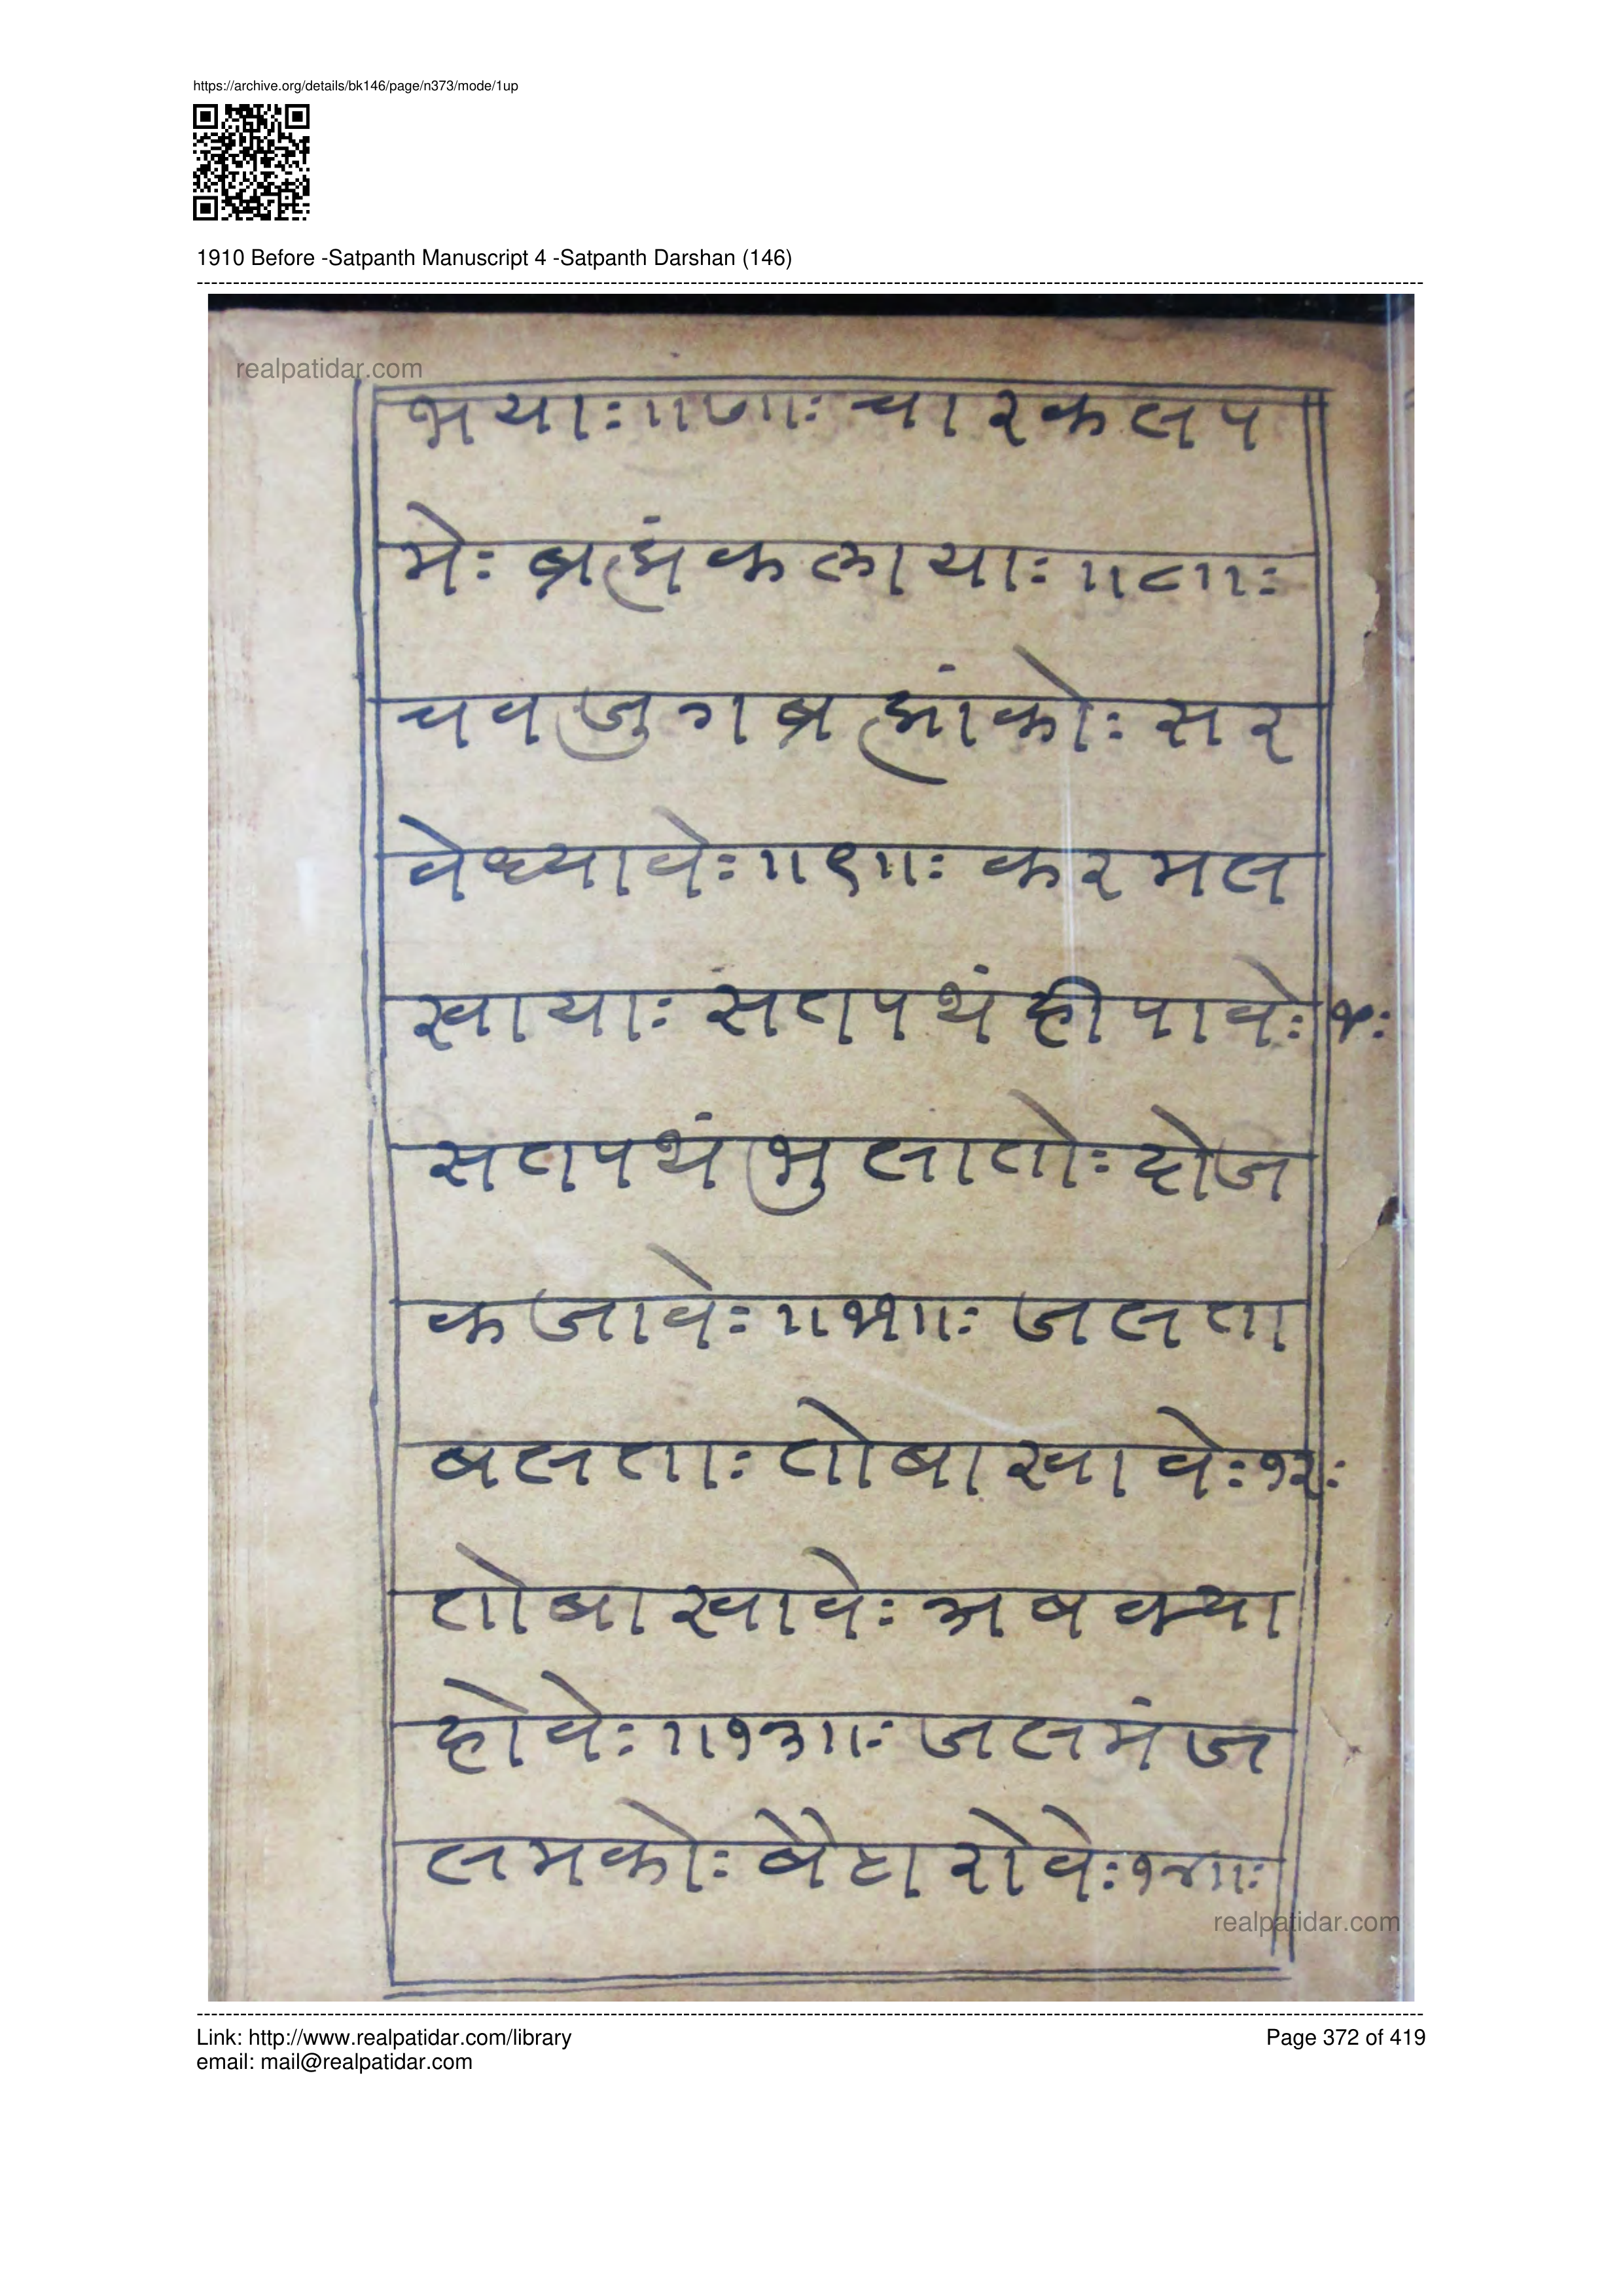 https://archive.org/details/bk146/page/n373/mode/1up
1910 Before -Satpanth Manuscript 4 -Satpanth Darshan (146)
realpatidar.com
भयाः॥७॥ः चारकलप
मेः ब्रह्मंकलायाः॥८॥ः
चवजुगब्रह्मांकोः सर
वेध्यावेः॥९॥ः करमल
खायाः सतपथंहीपावेः
सतपथंभुलातोः दोज
कजावेः॥११॥ः जलता
बलताः तोबाखावेः१२ः
तोबाखावेः अबक्या
होवेः॥१३॥ः जलमंज
लमकोः बैठारोवेः१४॥ः
realpatidar.com
Link: http://www.realpatidar.com/library
Page 372 of 419
email: mail@realpatidar.com